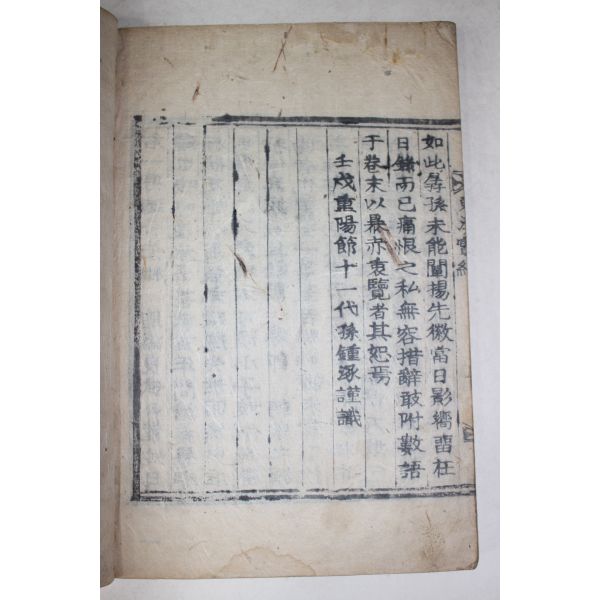 如此孱孫未能闡揚先徽當日影響留在
日錄而已痛恨之私無容措辭敢附數語
于卷末以暴亦衷覽者其恕焉
壬戌重陽節十一代孫鍾琢謹識